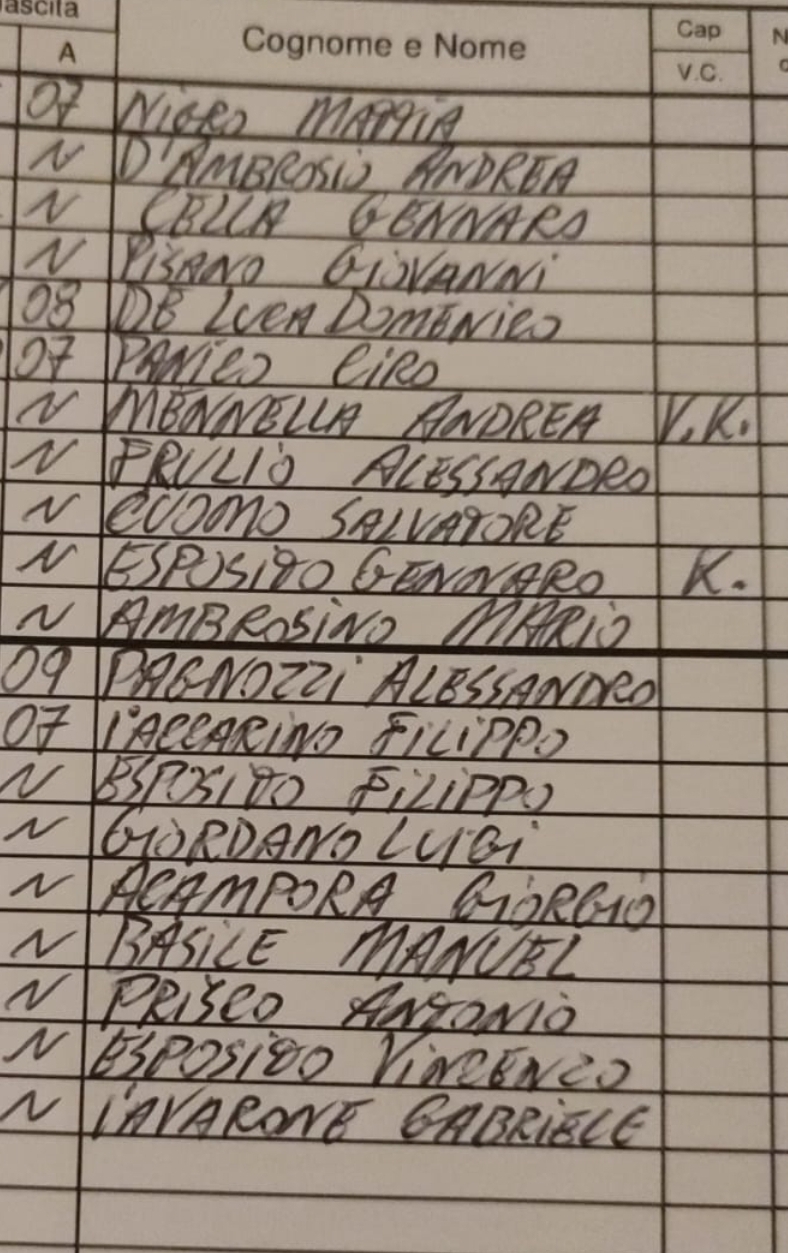 ascita
Cognome e Nome Cap
A V.C.
07 NIGRO MATTIA
N D'AMBROSIO ANDREA
N CELLA GENNARO
N PISANO GIOVANNI
08 DE LUCA DOMENICO
07 PANICO CIRO
N MENNELLA ANDREA V.K.
N FRULIO ALESSANDRO
N CUOMO SALVATORE
N ESPOSITO GENNARO K.
N AMBROSINO MARIO
09 PAGNOZZI ALESSANDRO
07 IACCARINO FILIPPO
N ESPOSITO FILIPPO
N GIORDANO LUIGI
N ACAMPORA GIORGIO
N BASILE MANUEL
N PRISCO ANTONIO
N ESPOSITO VINCENZO
N IAVARONE GABRIELE